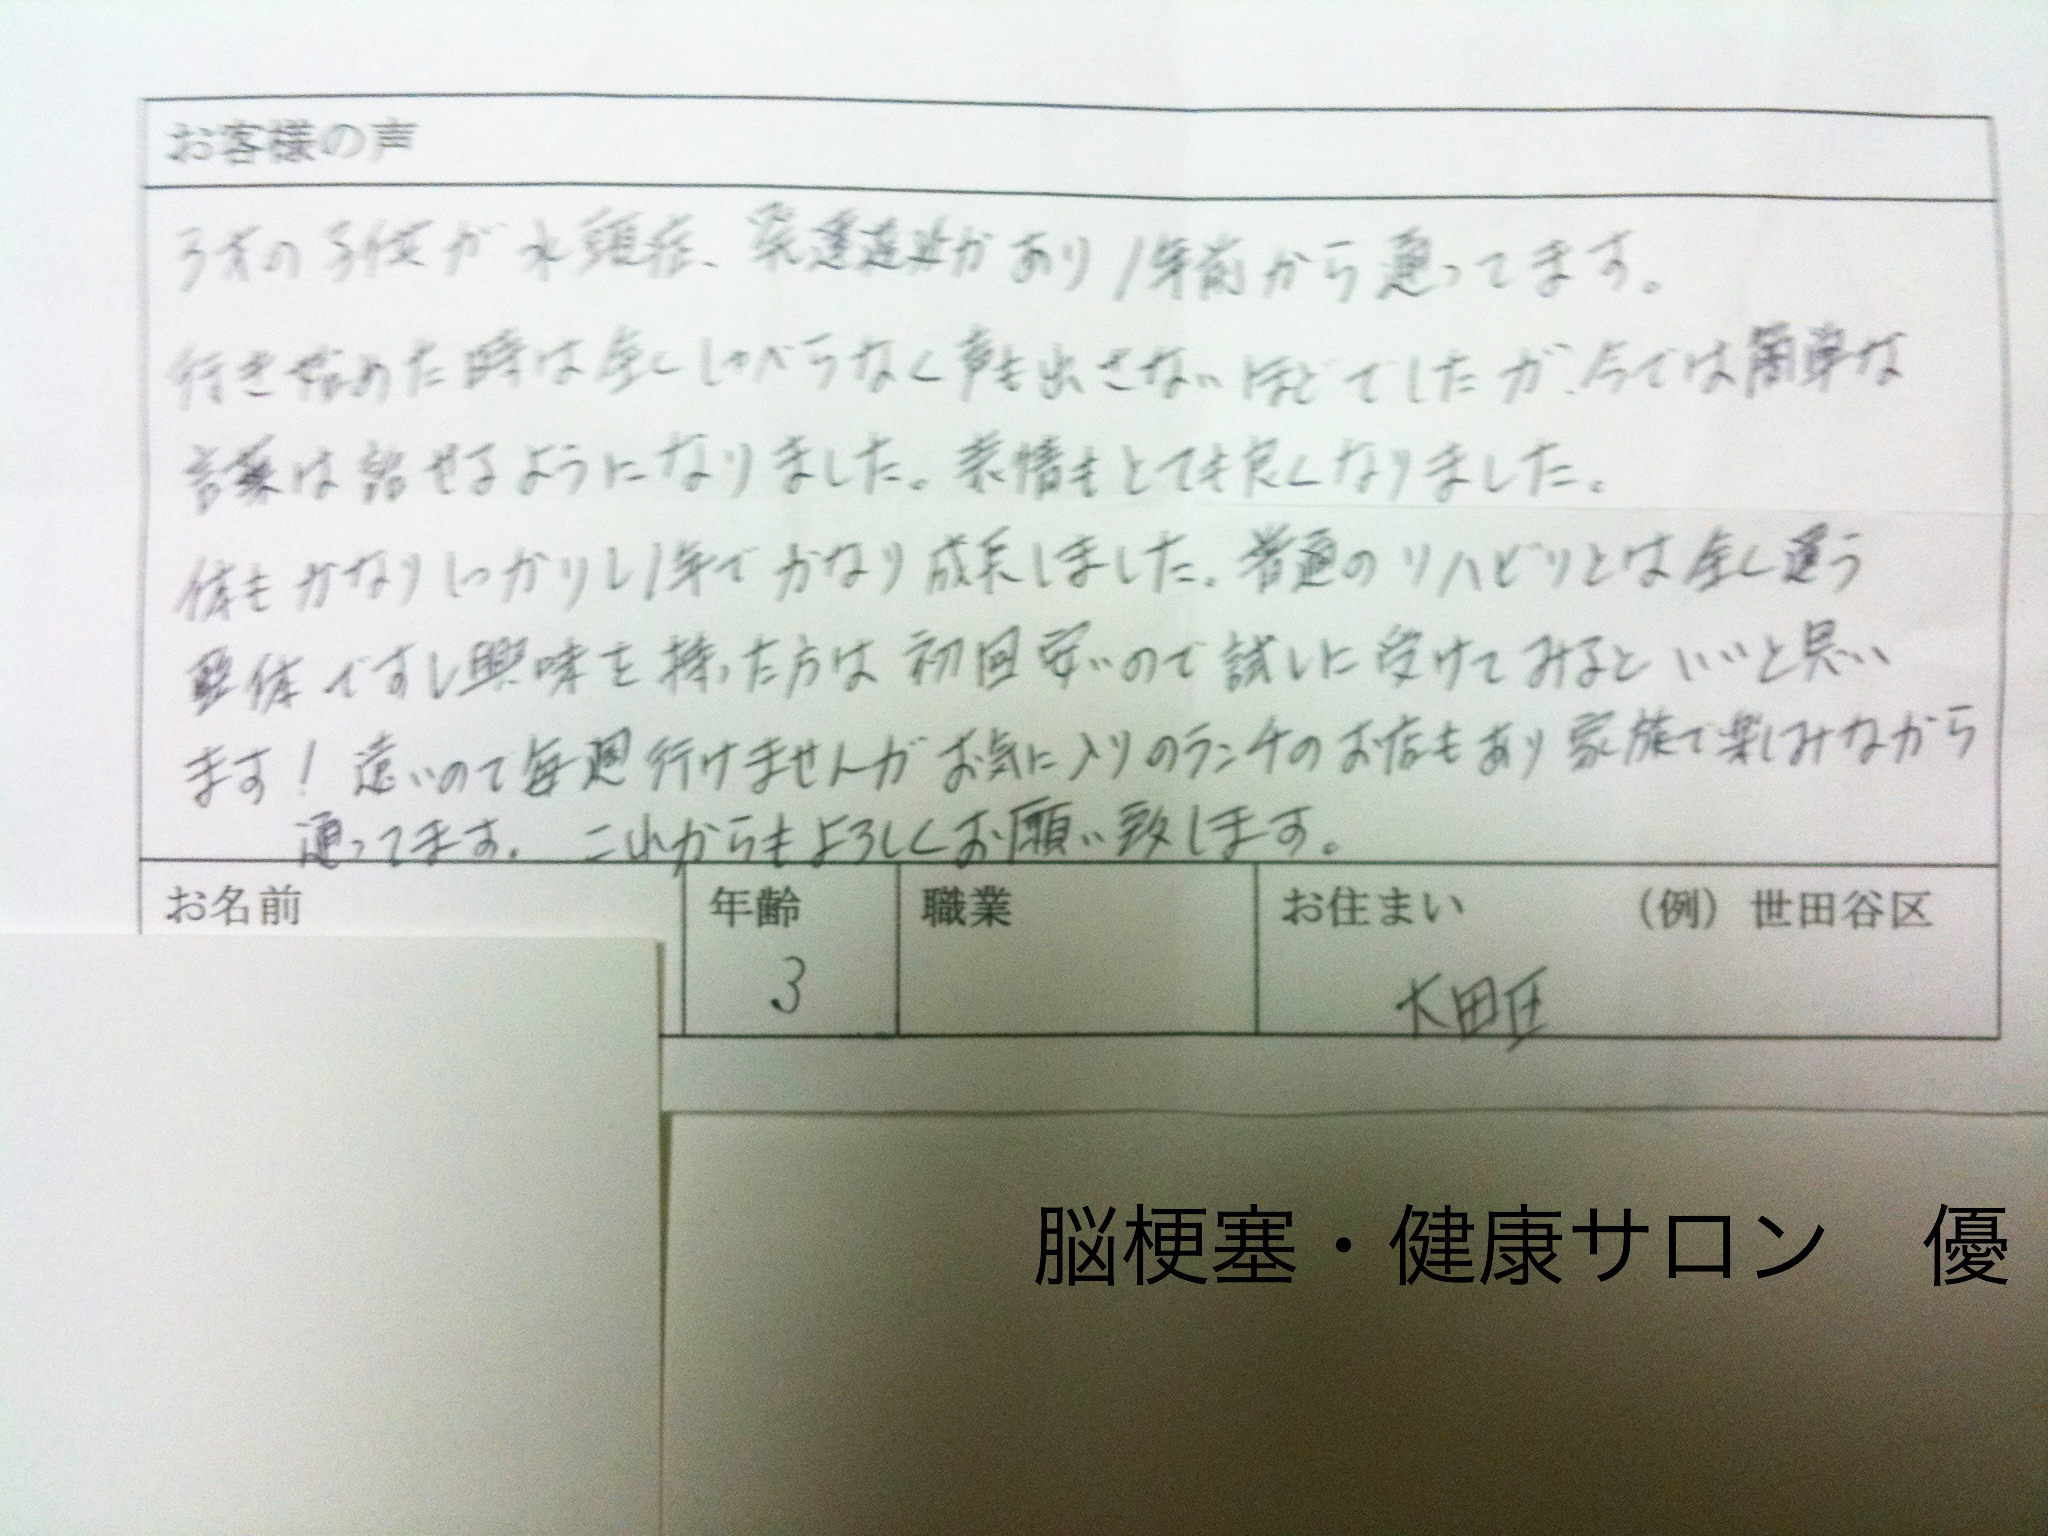 お客様の声
3才の子供が水頭症、発達遅延があり1年前から通ってます。
行き始めた時は全くしゃべらなく声も出さないほどでしたが、今では簡単な
言葉は話せるようになりました。表情もとても良くなりました。
体もかなりしっかりし1年でかなり成長しました。普通のリハビリとは全く違う
整体ですし興味を持った方は初回安いので試しに受けてみるといいと思い
ます！遠いので毎週行けませんがお気に入りのランチのお店もあり家族で楽しみながら
通ってます。これからもよろしくお願い致します。
お名前 年齢 職業 お住まい （例）世田谷区
3 大田区
脳梗塞・健康サロン 優